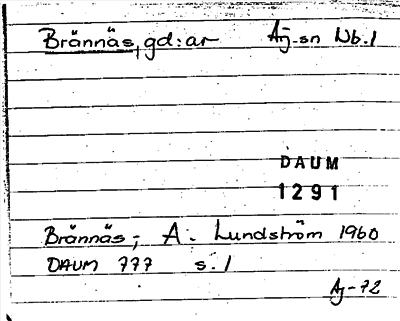 Brännäs, gd:ar Aj-sn Nb.1
DAUM
1291
Brännäs; A. Lundström 1960
DAUM 777 s.1
Aj-72